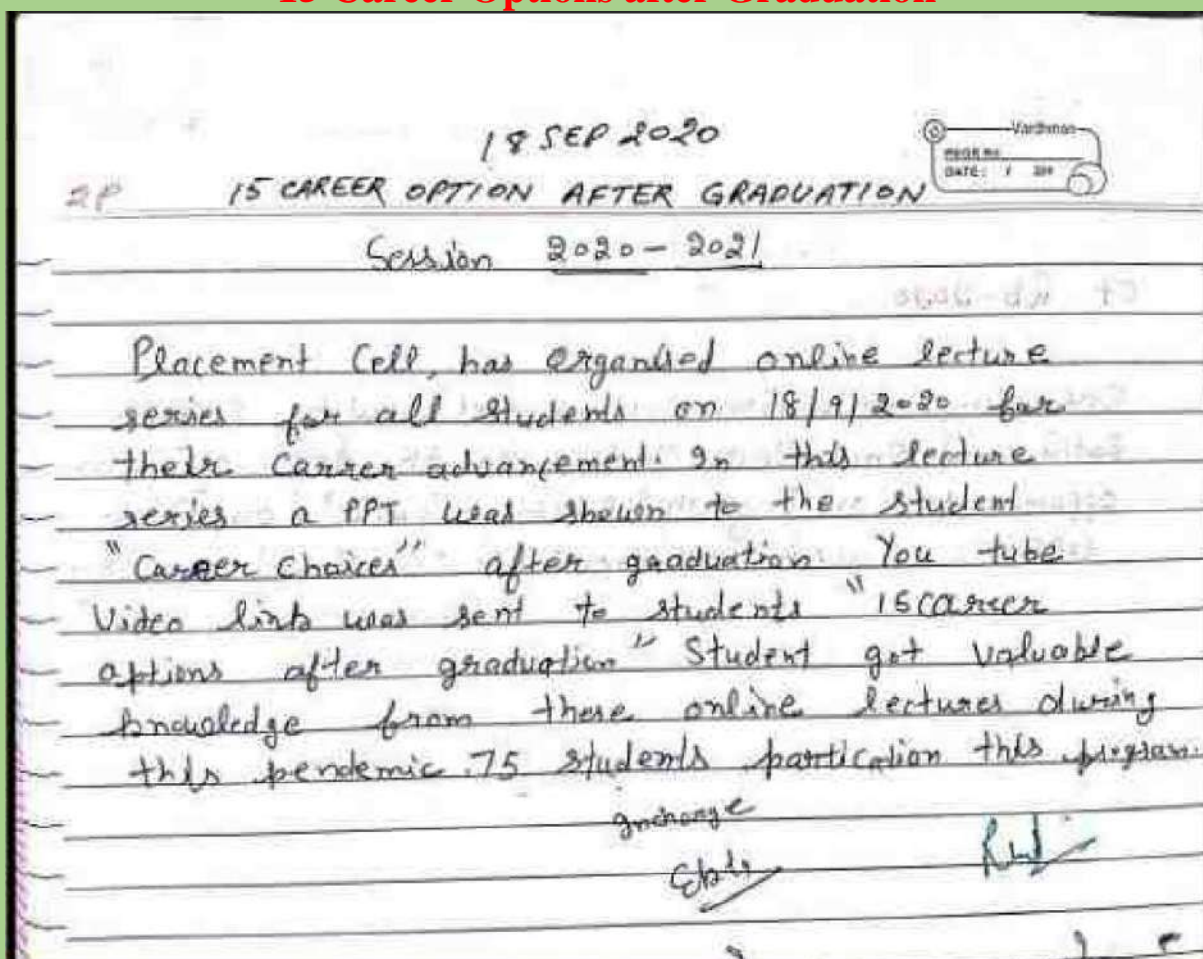 15 Career Options after Graduation
18 SEP 2020
Vardhman
PAGE NO.
DATE: / 20
15 CAREER OPTION AFTER GRADUATION
Session 2020-2021
Placement Cell, has organised online lecture
series for all students on 18/9/2020 for
their Carrer advancement. In this lecture
series a PPT was shown to the student
"Career Choices" after graduation You tube
Video link was sent to students "15 career
options after graduation" Student got valuable
knowledge from these online lectures during
this pendemic. 75 students partication this program.
Incharge